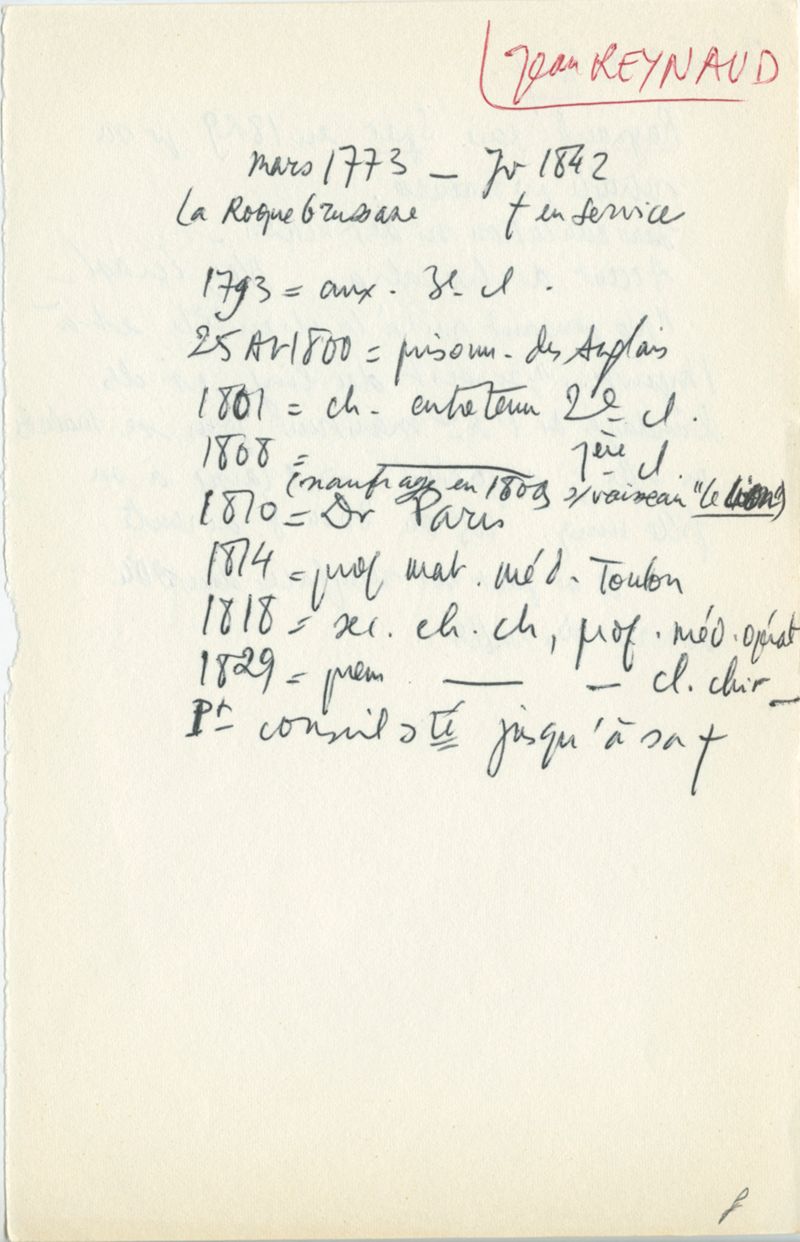 Jean REYNAUD
mars 1773 — Jr 1842
La Roquebrussane † en service
1793 = aux. 3e cl.
25 Avr 1800 = prisonn. des Anglais
1801 = ch. entretenu 2e cl.
1808 = —— 1ère cl
(naufrage en 1809 s/vaisseau "Le Lion")
1810 = Dr Paris
1814 = prof mat. méd. Toulon
1818 = sec. ch. ch, prof. méd. opérat
1829 = prem —— — cl. chir _
Pt conseil sté jusqu'à sa †